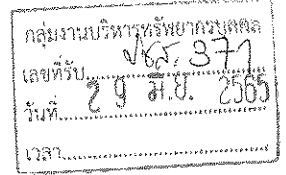 กลุ่มงานบริหารทรัพยากรบุคคล
เลขที่รับ ปชส. 371
วันที่ 29 มิ.ย. 2565
เวลา